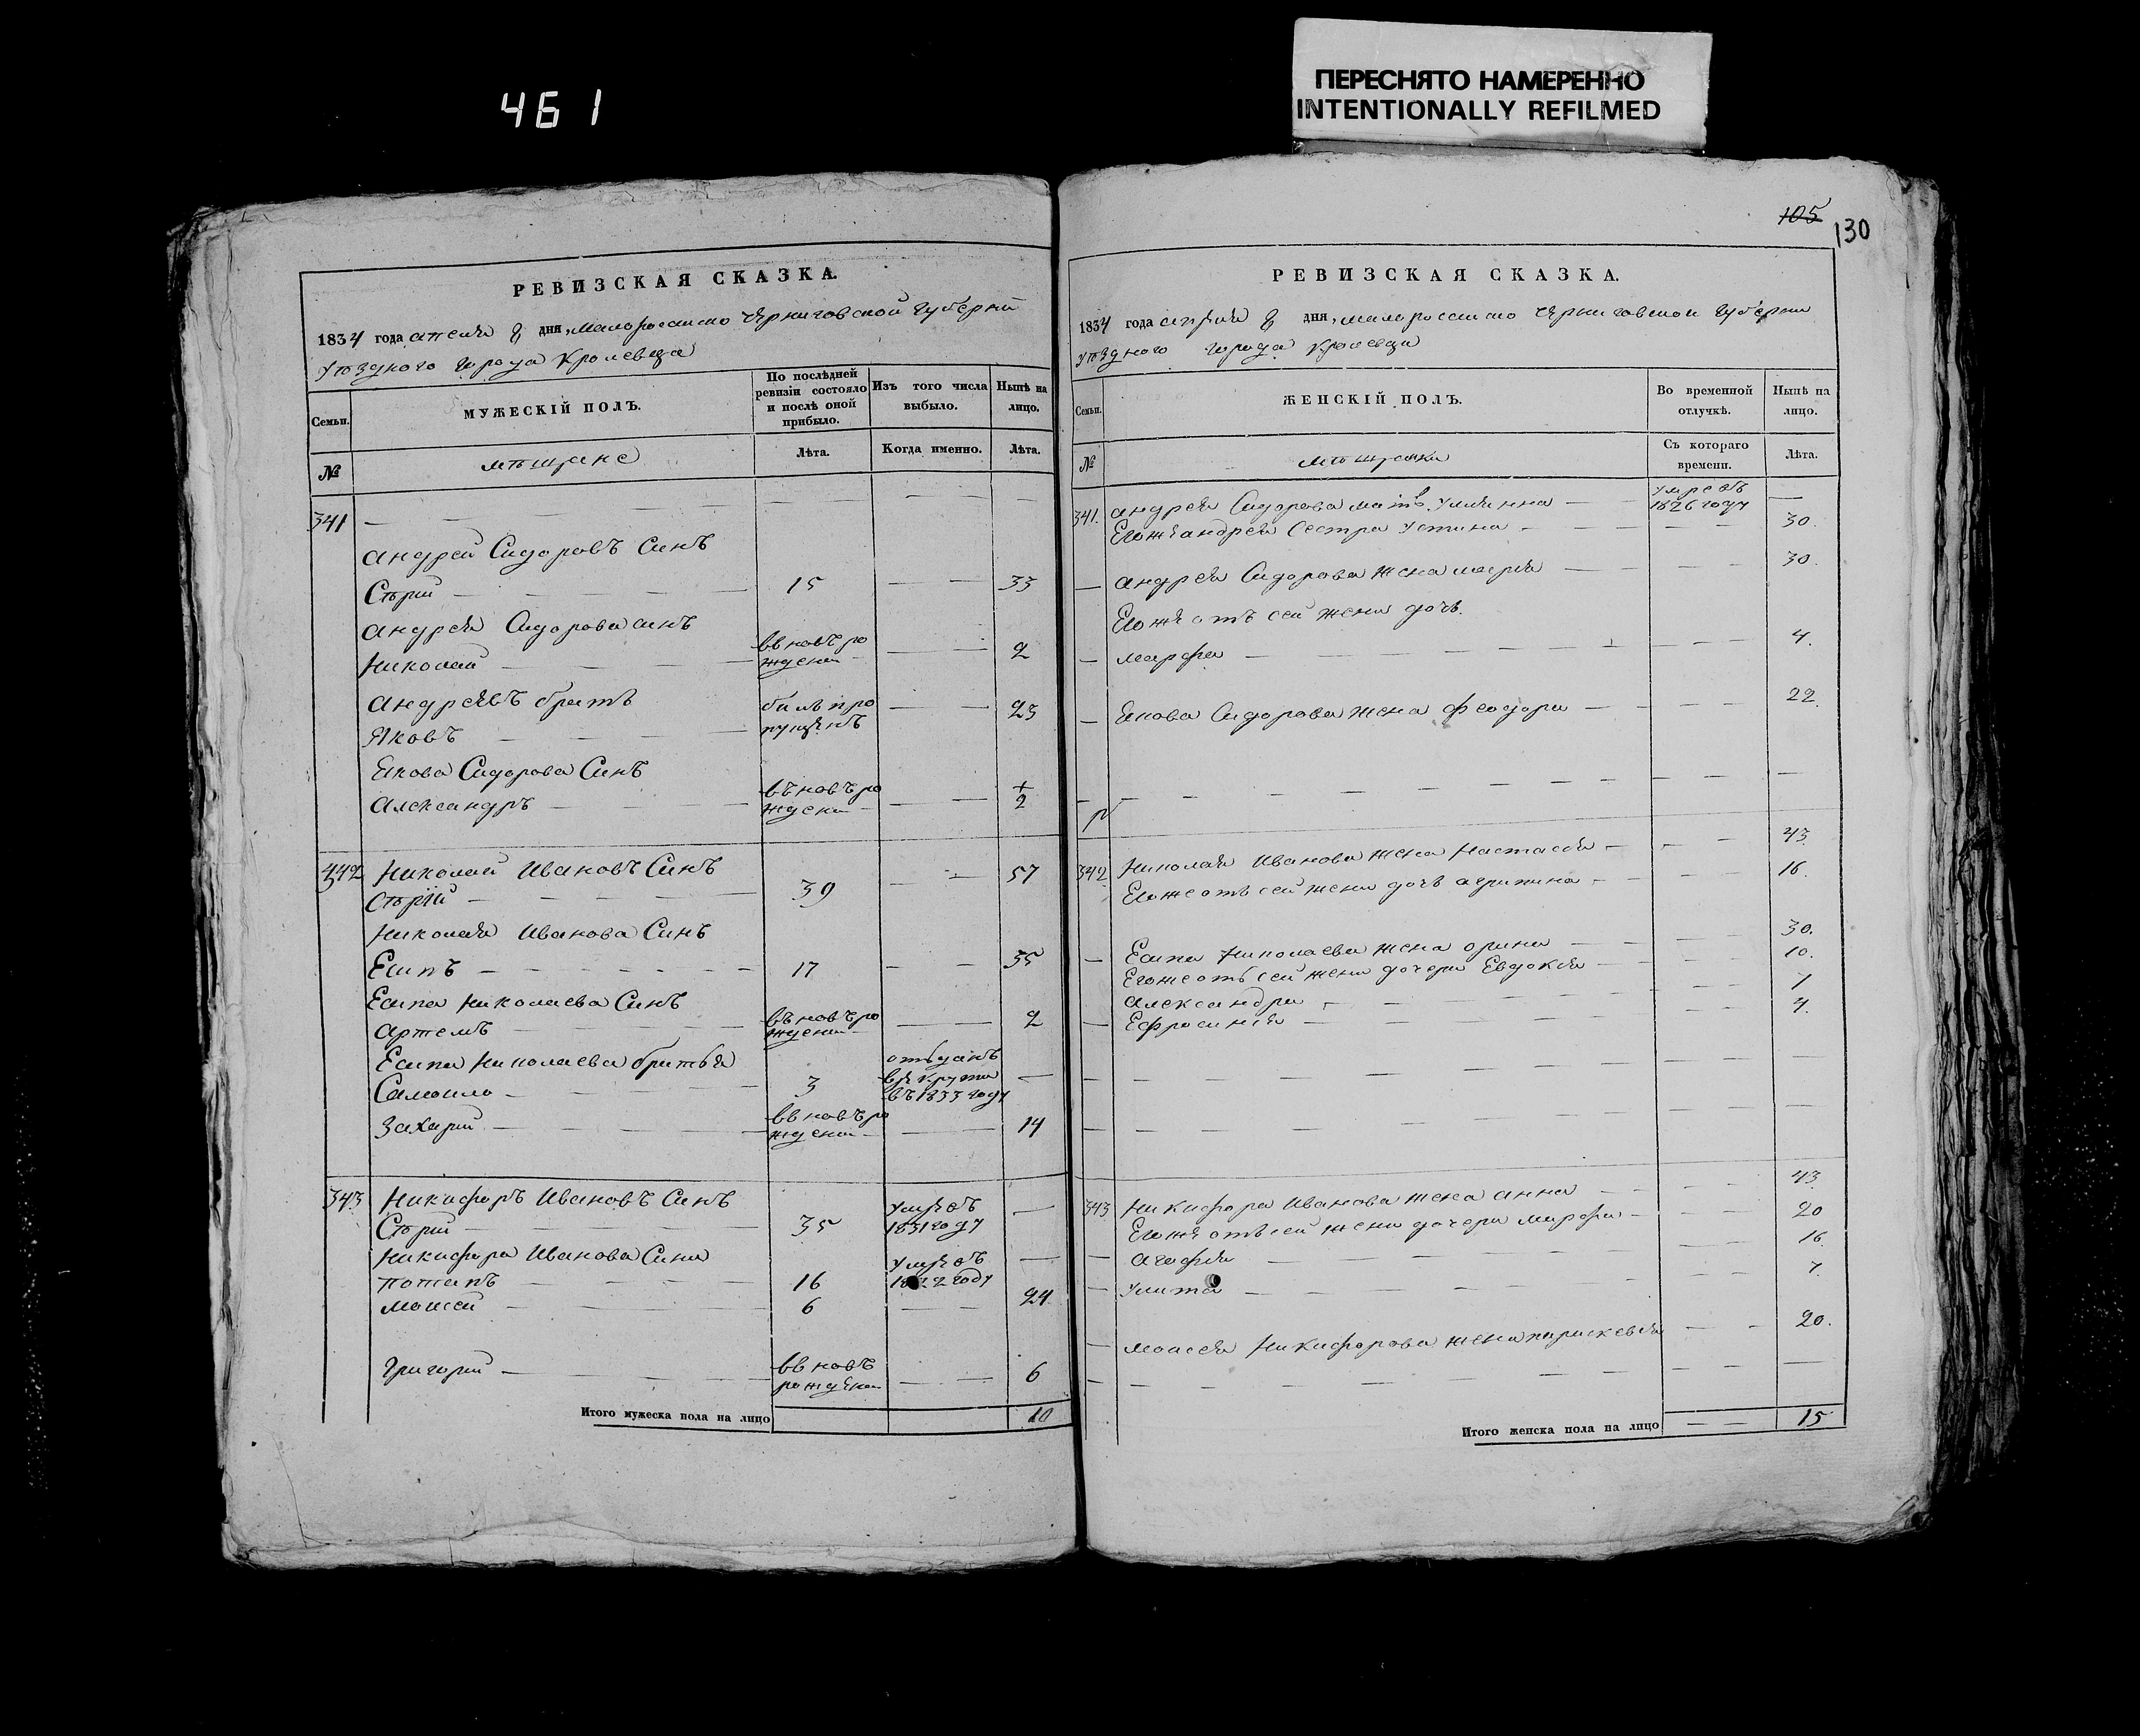 461
ПЕРЕСНЯТО НАМЕРЕННО
INTENTIONALLY REFILMED
РЕВИЗСКАЯ СКАЗКА.
1834 года апреля 8 дня, Малоросiйско Черниговской Губернiи
уѣзднаго города Кролевца
Семьи.
МУЖЕСКІЙ ПОЛЪ.
По послѣдней
ревизіи состояло
и послѣ оной
прибыло.
Изъ того числа
выбыло.
Нынѣ на
лицо.
№
мѣщане
Лѣта.
Когда именно.
Лѣта.
341
Андрей Сидоровъ Синъ
Сѣрий 15 33
Андрея Сидорова синъ
Николай вновь ро
ждени 2
Андреевъ братъ
Яковъ билъ про
пущенъ 23
Якова Сидорова Синъ
Александръ въ новъ ро
ждени 1/2
342 Николай Ивановъ Синъ
Сѣрий 39 57
Николая Иванова Синъ
Есипъ 17 35
Есипа Николаева Синъ
Артемъ въ новъ ро
ждени 2
Есипа Николаева братья
Самойло 3 отъданъ
въ 1833 году
Захарий вновъ ро
ждени 14
343 Никифоръ Ивановъ Синъ
Сѣрий 35 умребъ
1831 году
Никифора Иванова Сини
Потапъ 16 умребъ
году
Моисей 6 24
Григорий вновъ
рождени 6
Итого мужеска пола на лицо 10
105
130
РЕВИЗСКАЯ СКАЗКА.
1834 года апреля 8 дня, Малоросiйско Черниговской Губернии
уѣзднаго города Кролевца
Семьи.
ЖЕНСКІЙ ПОЛЪ.
Во временной
отлучкѣ.
Нынѣ на
лицо.
№
мѣщанки
Съ котораго
времени.
Лѣта.
341. Андрея Сидорова мать Улиянна умребъ
1826 году
Егоже андрея Сестра Устина 30.
Андрея Сидорова жена Мария 30.
Егоже отъ сей жени дочь
Марфа 4.
Якова Сидорова жена Феодора 22.
342 Николая Иванова жена Настасия 43.
Егоже отъ сей жени дочъ агрипина 16.
Есипа Николаева жена орина 30.
Егоже отъ сей жени дочери Евдокия 10.
Александра 7
Ефросиния 4.
343 Никифора Иванова жена анна 43.
Егоже отъ сей жени дочери Марфа 20
Агафия 16.
Улита 7.
Моисея Никифорова жена параскевия 20.
Итого женска пола на лицо 15